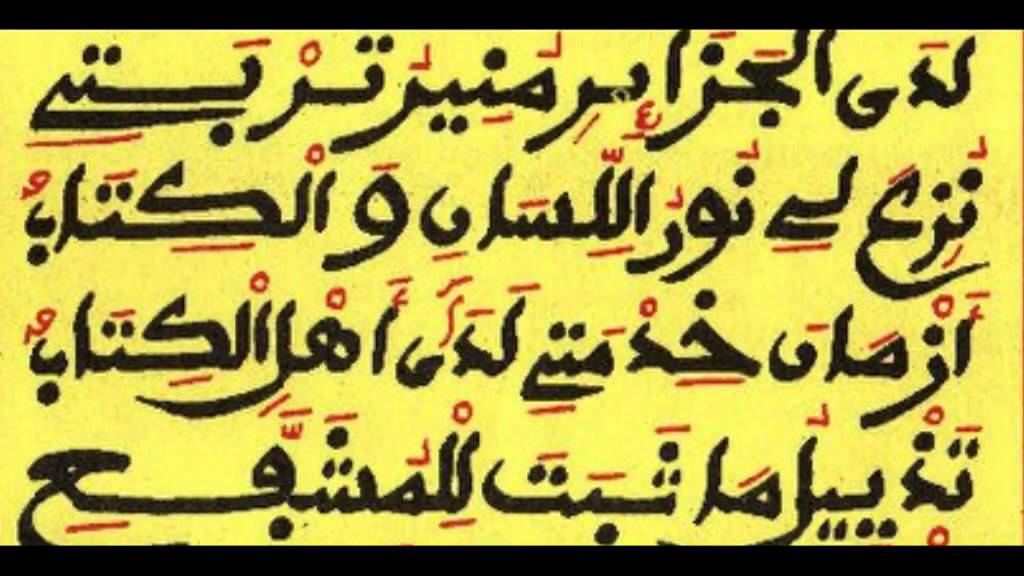 لَدَى الْجَزَائِرِ مُنِيرُ تُرْبَتِي
نُزِعَ لِي نُورُ اللِّسَانِ وَالْكِتَابْ
أَزْمَانَ خِدْمَتِي لَدَى أَهْلِ الْكِتَابْ
تَذْيِيلُ مَا ثَبَتَ لِلْمُشَفَّعِ